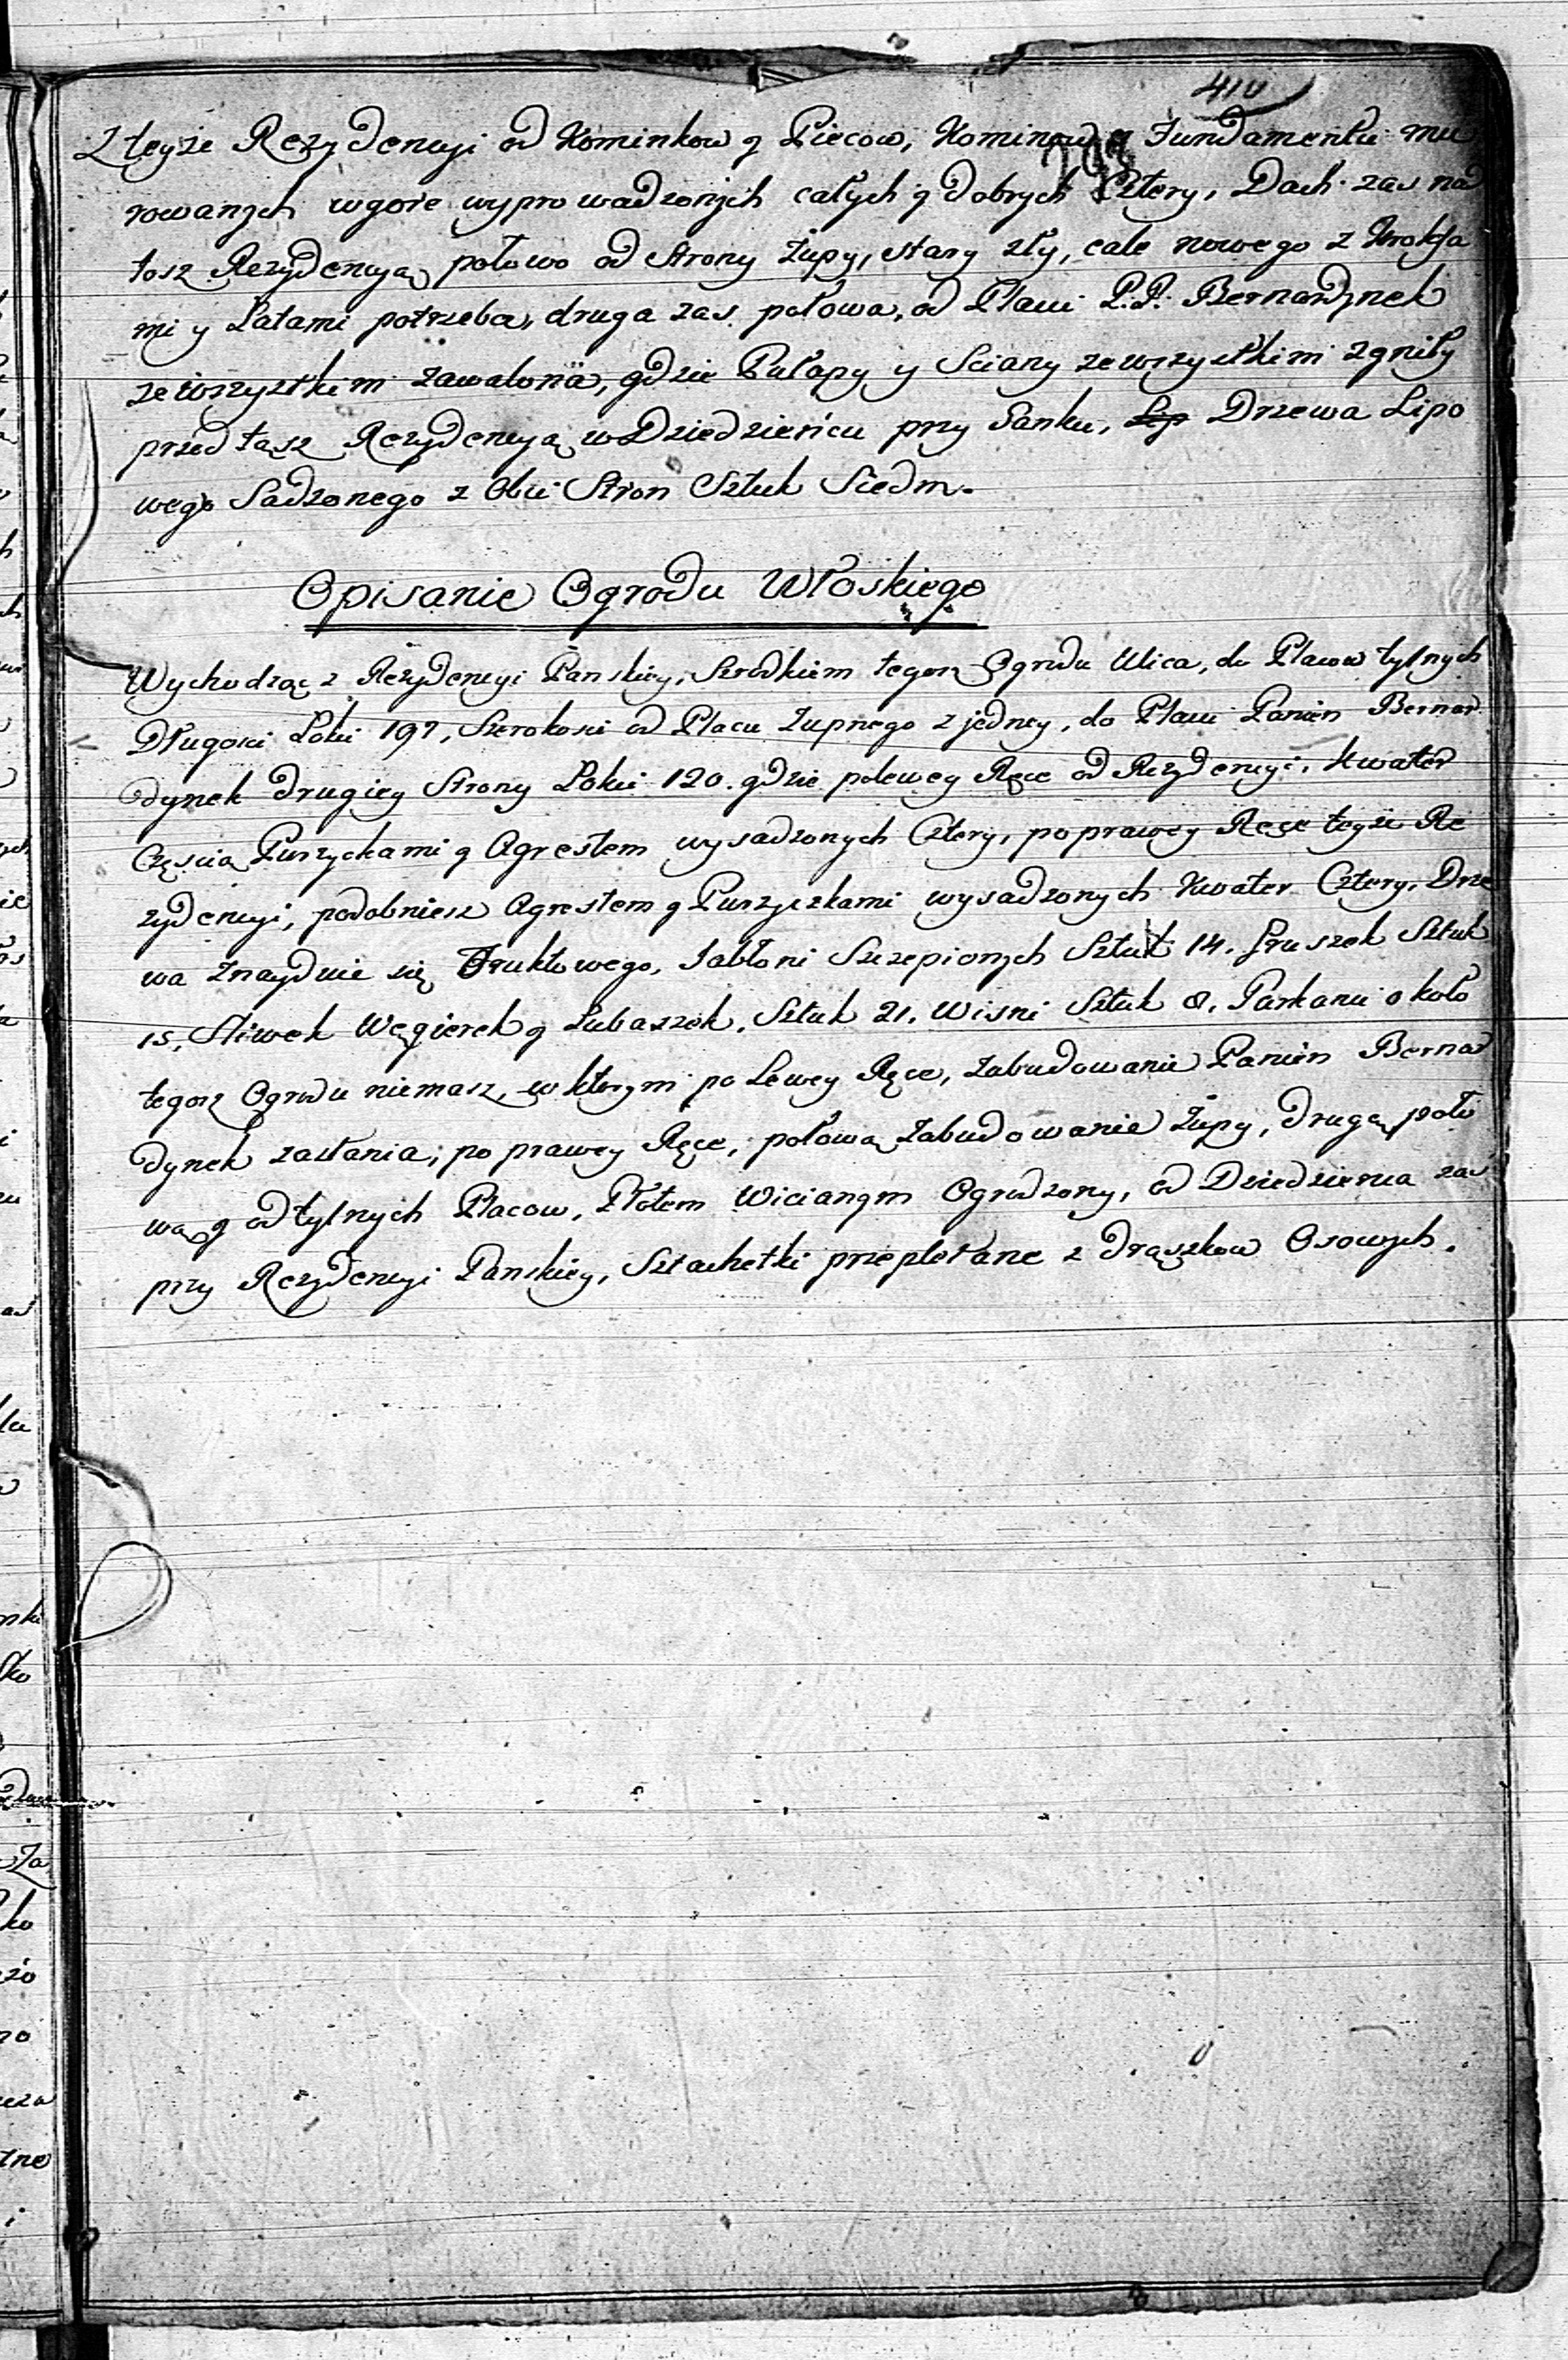 410
293
Z teyże Rezydencyi od Kominkow y Piecow, Kominow z Fundamentu mu
rowanych wgore wyprowadzonych całych y dobrych Cztery, Dach zas na
tosz Rezydencyą połowo od Strony Żupy, stary zły, cale nowego z Krokfa
mi y Łatami potrzeba, druga zas połowa, od Placu P.P. Bernardynek
ze wszystkim zawalona, gdzie Pułapy y Sciany ze wszystkim zgniły
przed tąsz Rezydencyą w Dziedzieńcu przy Ganku, Lip Drzewa Lipo
wego Sadzonego z Obu Stron Sztuk Siedm.
Opisanie Ogrodu Włoskiego
Wychodząc z Rezydencyi Panskiey, Szrodkiem tegoż Ogrodu Ulica, do Placow tylnych
Długosci Łokci 197, Szerokosci od Placu Żupnego z jedney, do Placu Panien Bernar
dynek drugiey Strony Łokci 120. gdzie po lewey Ręce od Rezydencyi, Kwater
Częscią Purzyckami y Agrestem wysadzonych Cztery, po prawey Ręce teyże Re
zydencyi, podobniesz Agrestem y Purzyczkami wysadzonych Kwater Cztery, Drze
wa Znayduie się Fruktowego, Jabłoni Szczepionych Sztuk 14. Gruszek Sztuk
15, Sliwek Węgierek y Lubaszek, Sztuk 21. Wisni Sztuk 8. Parkanu około
tegosz Ogrodu niemasz, w ktorym po Lewey Ręce, Zabudowanie Panien Bernar
dynek zasłania, po prawey Ręce, połową Zabudowanie Żupy, drugą poło
wą y od tylnych Placow, Płotem Wicianym Ogrodzony, od Dziedzienca zas
przy Rezydencyi Panskiey, Sztachetki przeplotane z Drązkow Osowych.